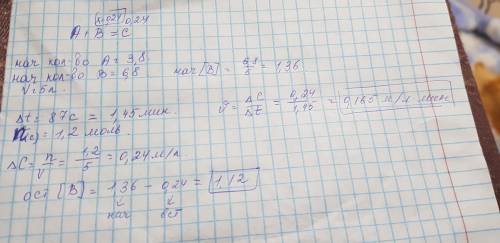 0,24
A + B = C
нач кол-во A = 3,8.
нач кол-во B = 6,8 нач [B] = 6,8/5 = 1,36.
V = 5л.
Δt = 87с = 1,45 мин. v = ΔC/Δt = 0,24/1,45 = 0,165 м/л мин.
n(c) = 1,2 моль.
ΔC = n/V = 1,2/5 = 0,24 м/л.
ост [B] = 1,36 - 0,24 = 1,12
нач вст